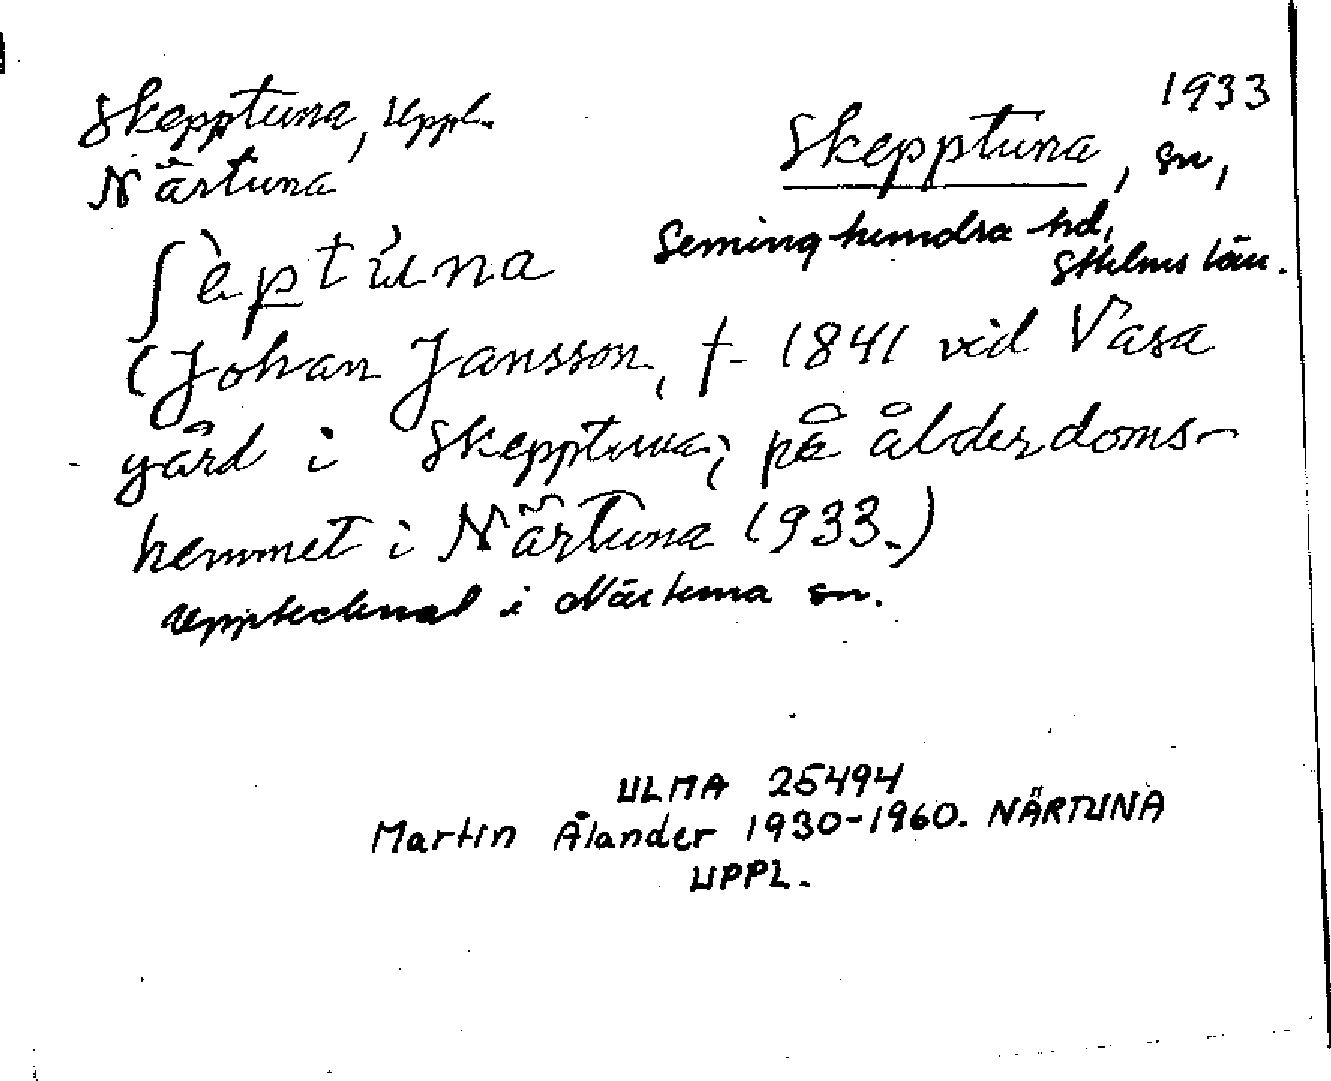 1933
Skepptuna, Uppl.
Närtuna
Skepptuna, sn,
Seminghundra hd,
Sthlms län.
ʃèptúna
(Johan Jansson, f. 1841 vid Vasa
gård i Skepptuna; på ålderdoms-
hemmet i Närtuna 1933.)
Upptecknat i Närtuna sn.
ULMA 25494
Martin Ålander 1930-1960. NÄRTUNA
UPPL.